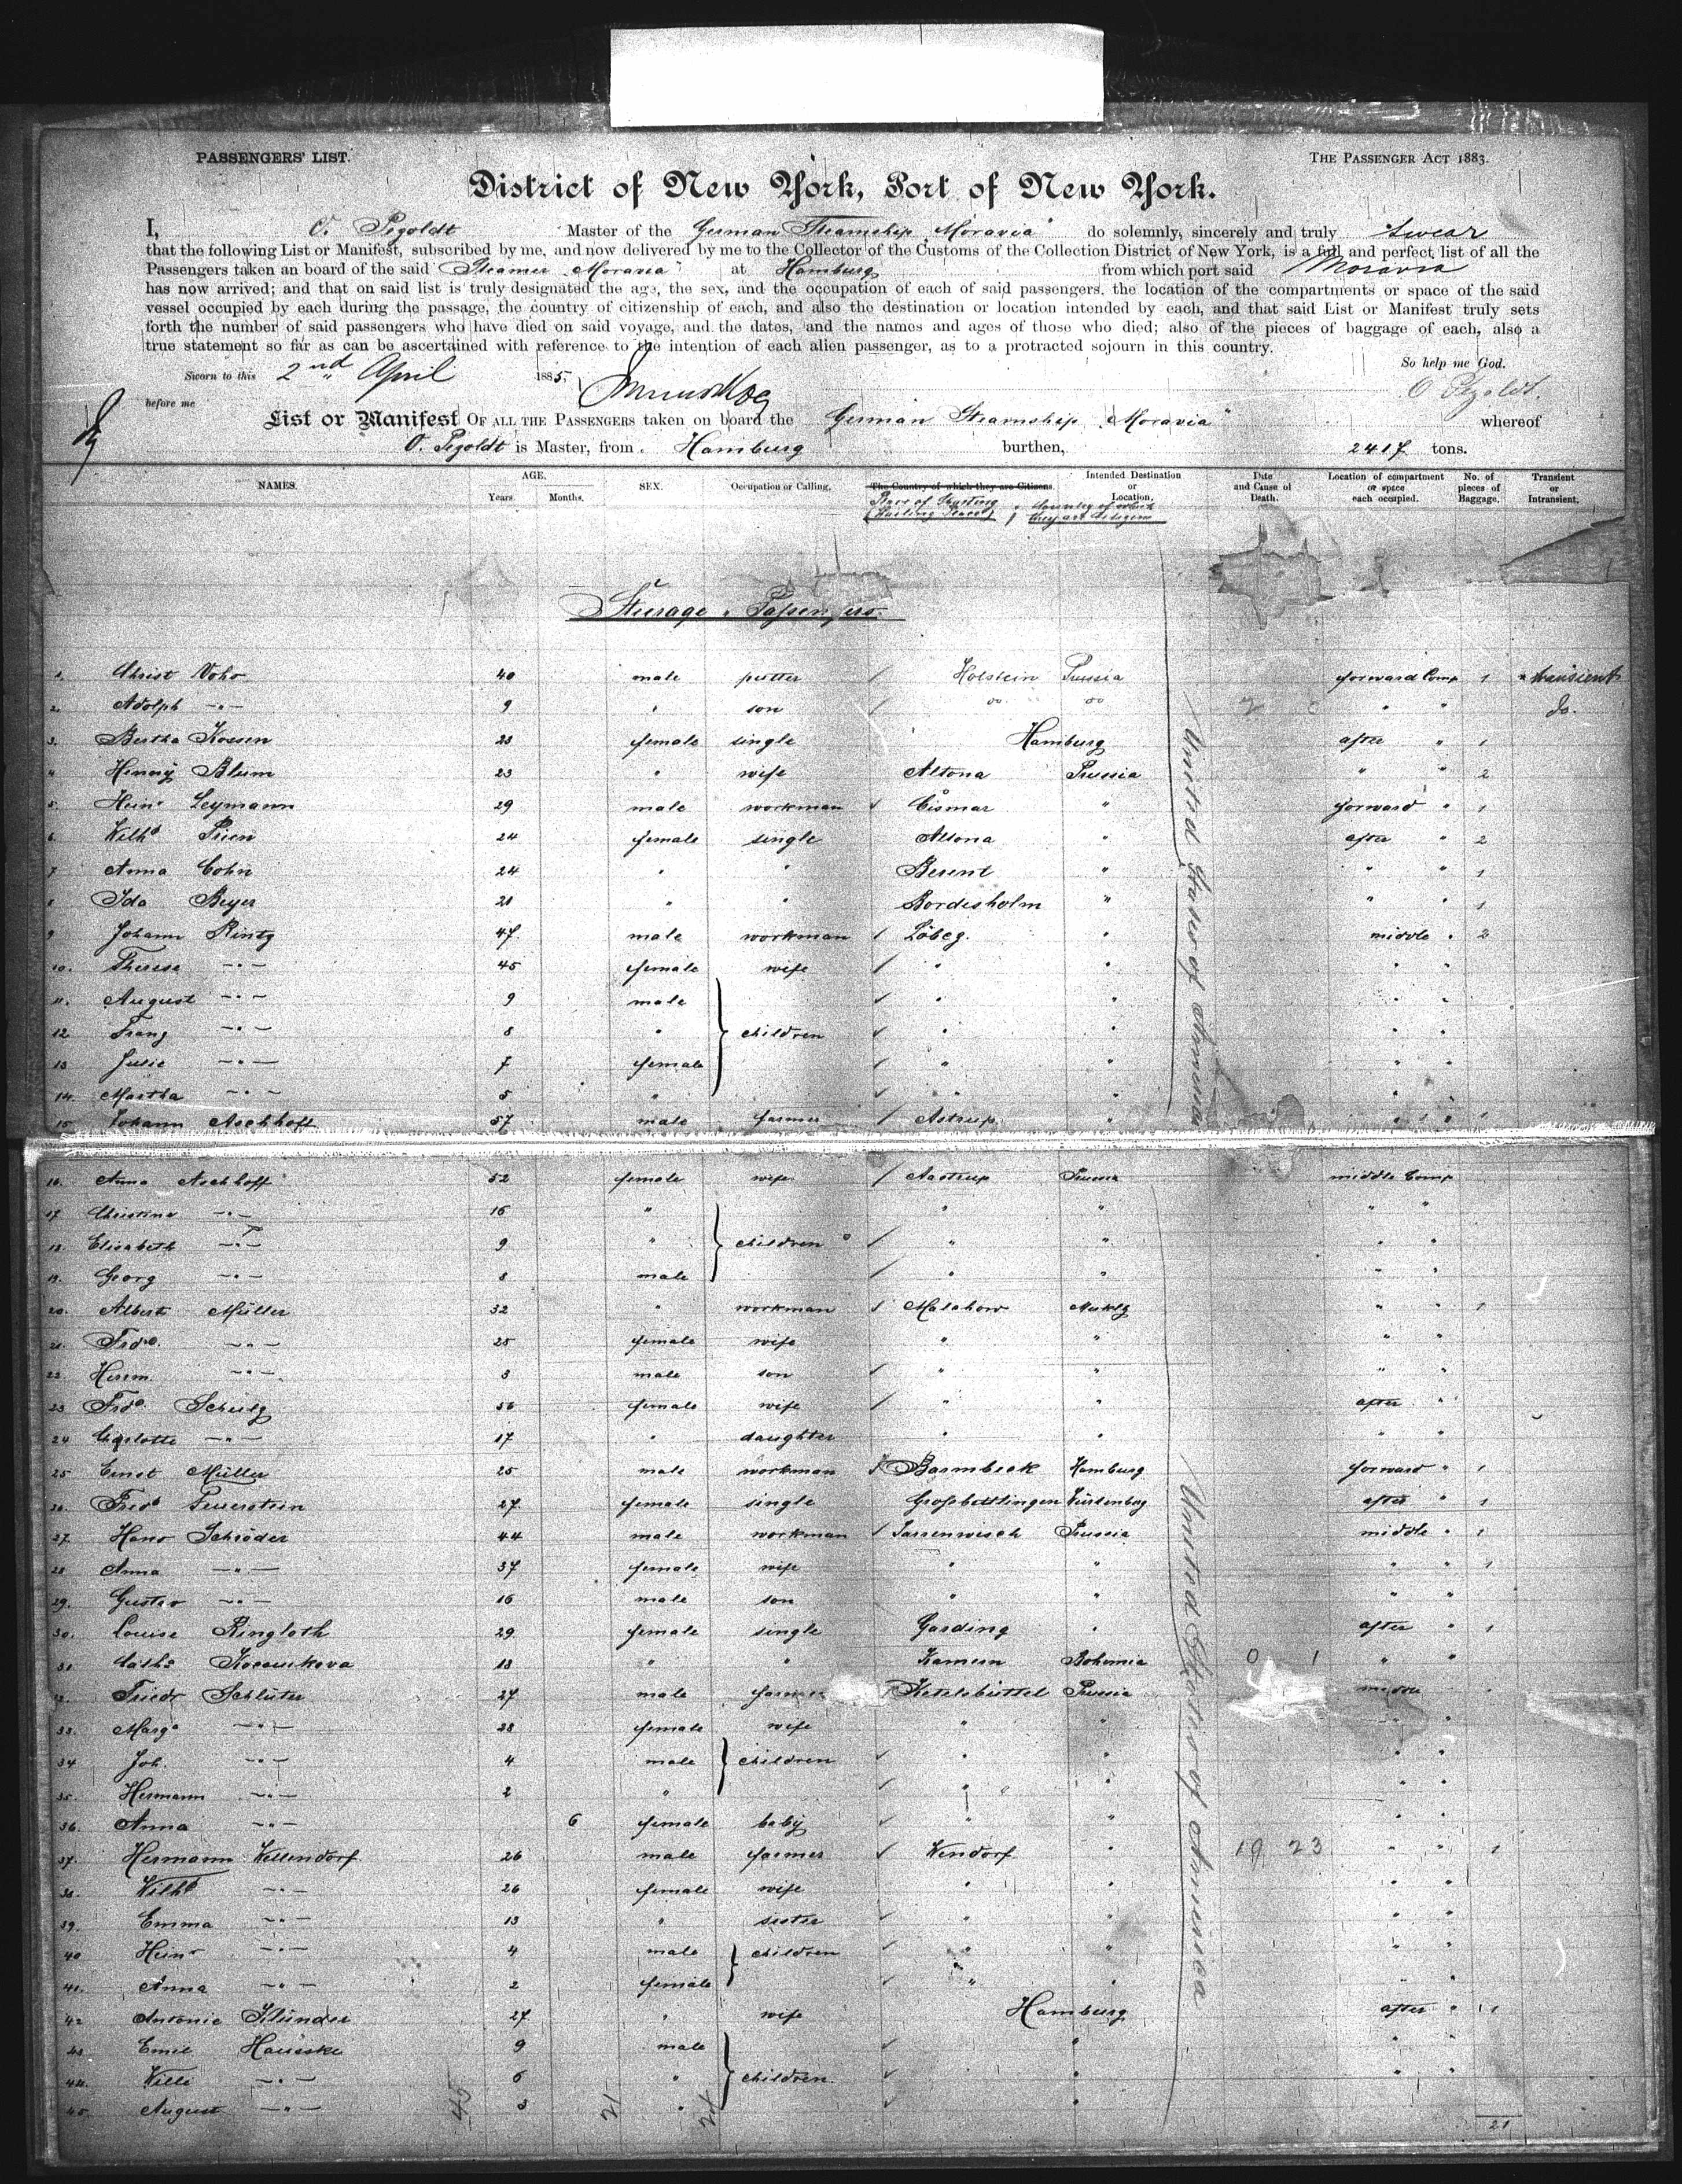 PASSENGERS' LIST. THE PASSENGER ACT 1883.
District of New York, Port of New York.
I, O. Pezoldt Master of the German Steamship "Moravia" do solemnly, sincerely and truly swear
that the following List or Manifest, subscribed by me, and now delivered by me to the Collector of the Customs of the Collection District of New York, is a full and perfect list of all the
Passengers taken an board of the said Steamer "Moravia" at Hamburg from which port said Moravia
has now arrived; and that on said list is truly designated the age, the sex, and the occupation of each of said passengers, the location of the compartments or space of the said
vessel occupied by each during the passage, the country of citizenship of each, and also the destination or location intended by each, and that said List or Manifest truly sets
forth the number of said passengers who have died on said voyage, and the dates, and the names and ages of those who died; also of the pieces of baggage of each, also a
true statement so far as can be ascertained with reference to the intention of each alien passenger, as to a protracted sojourn in this country.
So help me God.
Sworn to this 2nd April 1885,
O Pezoldt.
before me
List or Manifest OF ALL THE PASSENGERS taken on board the German Steamship "Moravia" whereof
O. Pezoldt is Master, from Hamburg burthen, 2417 tons.
NAMES. AGE. Years. Months. SEX. Occupation or Calling. The Country of which they are Citizens. Intended Destination or Location. Date and Cause of Death. Location of compartment or space each occupied. No. of pieces of Baggage. Transient or Intransient.
Place of Starting (Starting Place) Country of which they are Citizens
Steerage Passengers.
1. Christ Voho 40 male putter Holstein Prussia forward Comp 1 transient
2. Adolph -"- 9 " son do do " " do.
3. Bertha Kossen 23 female single Hamburg after " 1
4 Henny Blum 23 " wife Altona Prussia " " 2
5. Heinr Leymann 29 male workman Cismar " forward " 1
6. Wilhe Prien 24 female single Altona " after " 2
7 Anna Cohn 24 " " Berent " " " 1
8 Ida Beyer 21 " " Bordesholm " " " 1
9 Johann Rintz 47 male workman Löbcz. " middle " 2
10. Therese -"- 45 female wife " " " "
11. August -"- 9 male " " " "
12 Franz -"- 8 " children " " " "
13 Julie -"- 7 female " " " "
14. Martha -"- 5 " " " " "
15 Johann Aschhoff 57 male farmer Astrup " " " 1
16. Anna Aschhoff 52 female wife Aastrup Prussia middle Comp
17 Christina -"- 16 " " " " "
18. Elisabeth -"- 9 " children " " " "
19. Georg -"- 8 male " " " "
20. Albert Müller 32 " workman Malchow Meklg " " 1
21. Frdke. -"- 25 female wife " " " "
22 Herrm. -"- 3 male son " " " "
23 Frdke. Schulz 56 female wife " " after "
24 Charlotte -"- 17 " daughter " " " "
25 Ernst Müller 25 male workman Barmbeck Hamburg forward " 1
26. Fredke Feuerstein 27 female single Grossbettlingen Würtenbg after " 1
27. Hans Schröder 44 male workman Sarrenwisch Prussia middle " 1
28 Anna -"- 37 female wife " " " " 1
29. Gustav -"- 16 male son " " " "
30. Louise Ringloth 29 female single Garding " after " 1
31 Cathe Kocourkova 18 " " Kamern Bohemia 0 1 " "
32. Friedr Schlüter 27 male farmer Ketelsbüttel Prussia middle
33. Marga -"- 28 female wife " " " "
34 Joh. -"- 4 male children " " " "
35. Hermann -"- 2 " " " " "
36. Anna -"- 6 female baby " " " "
37. Hermann Wellendorf 26 male farmer Wendorf " 19 23 " " 1
38. Wilhe -"- 26 female wife " " " "
39. Emma -"- 13 " sister " " " "
40 Heinr -"- 4 male children " " " "
41. Anna -"- 2 female " " " "
42 Antonie Klünder 27 " wife Hamburg after " 1
43 Emil Haueske 9 male " " "
44. Willi -"- 6 " children " " "
45. August -"- 3 " "
United States of America
United States of America
45 21 24 21